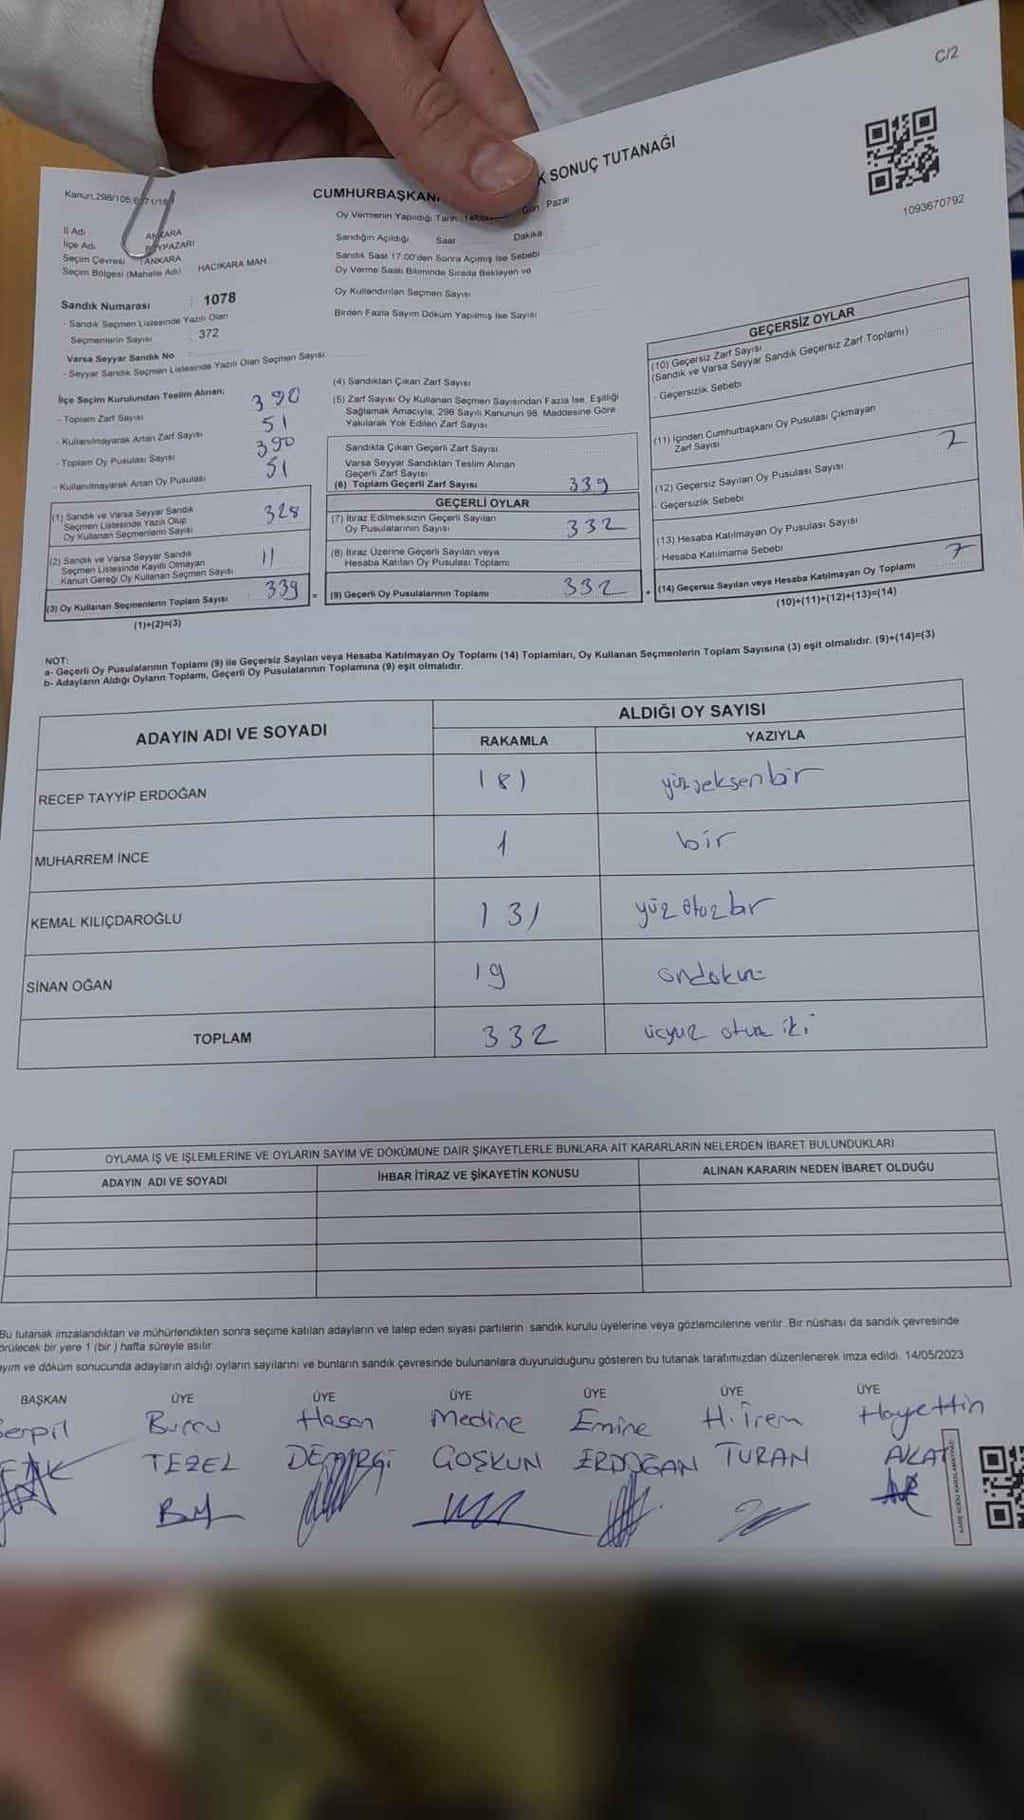 C/2
CUMHURBAŞKANI
K SONUÇ TUTANAĞI
1093670792
Kanun,298/105,
İl Adı ANKARA
İlçe Adı BEYPAZARI
Seçim Çevresi : ANKARA
Seçim Bölgesi (Mahalle Adı) HACIKARA MAH.
Sandık Numarası : 1078
- Sandık Seçmen Listesinde Yazılı Olan
Seçmenlerin Sayısı : 372
Varsa Seyyar Sandık No :
- Seyyar Sandık Seçmen Listesinde Yazılı Olan Seçmen Sayısı:
Oy Vermenin Yapıldığı Tarih Gün Pazar
Sandığın Açıldığı Saat Dakika
Sandık Saat 17:00'den Sonra Açılmış İse Sebebi
Oy Verme Saati Bitiminde Sırada Bekleyen ve
Oy Kullandırılan Seçmen Sayısı
Birden Fazla Sayım Döküm Yapılmış İse Sayısı
İlçe Seçim Kurulundan Teslim Alınan;
- Toplam Zarf Sayısı 390
- Kullanılmayarak Artan Zarf Sayısı 51
- Toplam Oy Pusulası Sayısı 390
- Kullanılmayarak Artan Oy Pusulası 51
(1) Sandık ve Varsa Seyyar Sandık
Seçmen Listesinde Yazılı Olup
Oy Kullanan Seçmenlerin Sayısı 328
(2) Sandık ve Varsa Seyyar Sandık
Seçmen Listesinde Kayıtlı Olmayan
Kanun Gereği Oy Kullanan Seçmen Sayısı 11
(3) Oy Kullanan Seçmenlerin Toplam Sayısı 339 =
(1)+(2)=(3)
(4) Sandıktan Çıkan Zarf Sayısı
(5) Zarf Sayısı Oy Kullanan Seçmen Sayısından Fazla İse, Eşitliği
Sağlamak Amacıyla, 298 Sayılı Kanunun 98. Maddesine Göre
Yakılarak Yok Edilen Zarf Sayısı
Sandıkta Çıkan Geçerli Zarf Sayısı
Varsa Seyyar Sandıktan Teslim Alınan
Geçerli Zarf Sayısı
(6) Toplam Geçerli Zarf Sayısı 339
GEÇERLİ OYLAR
(7) İtiraz Edilmeksizin Geçerli Sayılan
Oy Pusulalarının Sayısı 332
(8) İtiraz Üzerine Geçerli Sayılan veya
Hesaba Katılan Oy Pusulası Toplamı
(9) Geçerli Oy Pusulalarının Toplamı 332 +
GEÇERSİZ OYLAR
(10) Geçersiz Zarf Sayısı
(Sandık ve Varsa Seyyar Sandık Geçersiz Zarf Toplamı)
- Geçersizlik Sebebi
(11) İçinden Cumhurbaşkanı Oy Pusulası Çıkmayan
Zarf Sayısı
(12) Geçersiz Sayılan Oy Pusulası Sayısı 7
- Geçersizlik Sebebi
(13) Hesaba Katılmayan Oy Pusulası Sayısı
- Hesaba Katılmama Sebebi
(14) Geçersiz Sayılan veya Hesaba Katılmayan Oy Toplamı 7
(10)+(11)+(12)+(13)=(14)
NOT:
a- Geçerli Oy Pusulalarının Toplamı (9) ile Geçersiz Sayılan veya Hesaba Katılmayan Oy Toplamı (14) Toplamları, Oy Kullanan Seçmenlerin Toplam Sayısına (3) eşit olmalıdır. (9)+(14)=(3)
b- Adayların Aldığı Oyların Toplamı, Geçerli Oy Pusulalarının Toplamına (9) eşit olmalıdır.
ADAYIN ADI VE SOYADI
ALDIĞI OY SAYISI
RAKAMLA YAZIYLA
RECEP TAYYİP ERDOĞAN 181 yüzseksenbir
MUHARREM İNCE 1 bir
KEMAL KILIÇDAROĞLU 131 yüzotuzbir
SİNAN OĞAN 19 ondokuz
TOPLAM 332 üçyüz otuz iki
OYLAMA İŞ VE İŞLEMLERİNE VE OYLARIN SAYIM VE DÖKÜMÜNE DAİR ŞİKAYETLERLE BUNLARA AİT KARARLARIN NELERDEN İBARET BULUNDUKLARI
ADAYIN ADI VE SOYADI İHBAR İTİRAZ VE ŞİKAYETİN KONUSU ALINAN KARARIN NEDEN İBARET OLDUĞU
Bu tutanak imzalandıktan ve mühürlendikten sonra seçime katılan adayların ve talep eden siyasi partilerin sandık kurulu üyelerine veya gözlemcilerine verilir. Bir nüshası da sandık çevresinde
örülecek bir yere 1 (bir) hafta süreyle asılır.
ayım ve döküm sonucunda adayların aldığı oyların sayılarını ve bunların sandık çevresinde bulunanlara duyurulduğunu gösteren bu tutanak tarafımızdan düzenlenerek imza edildi. 14/05/2023
BAŞKAN ÜYE ÜYE ÜYE ÜYE ÜYE ÜYE
Serpil Burcu Hasan Medine Emine H. İrem Hayettin
TEZEL GOŞKUN ERDOĞAN TURAN AKAT
KARE KODU KARALAMAYINIZ